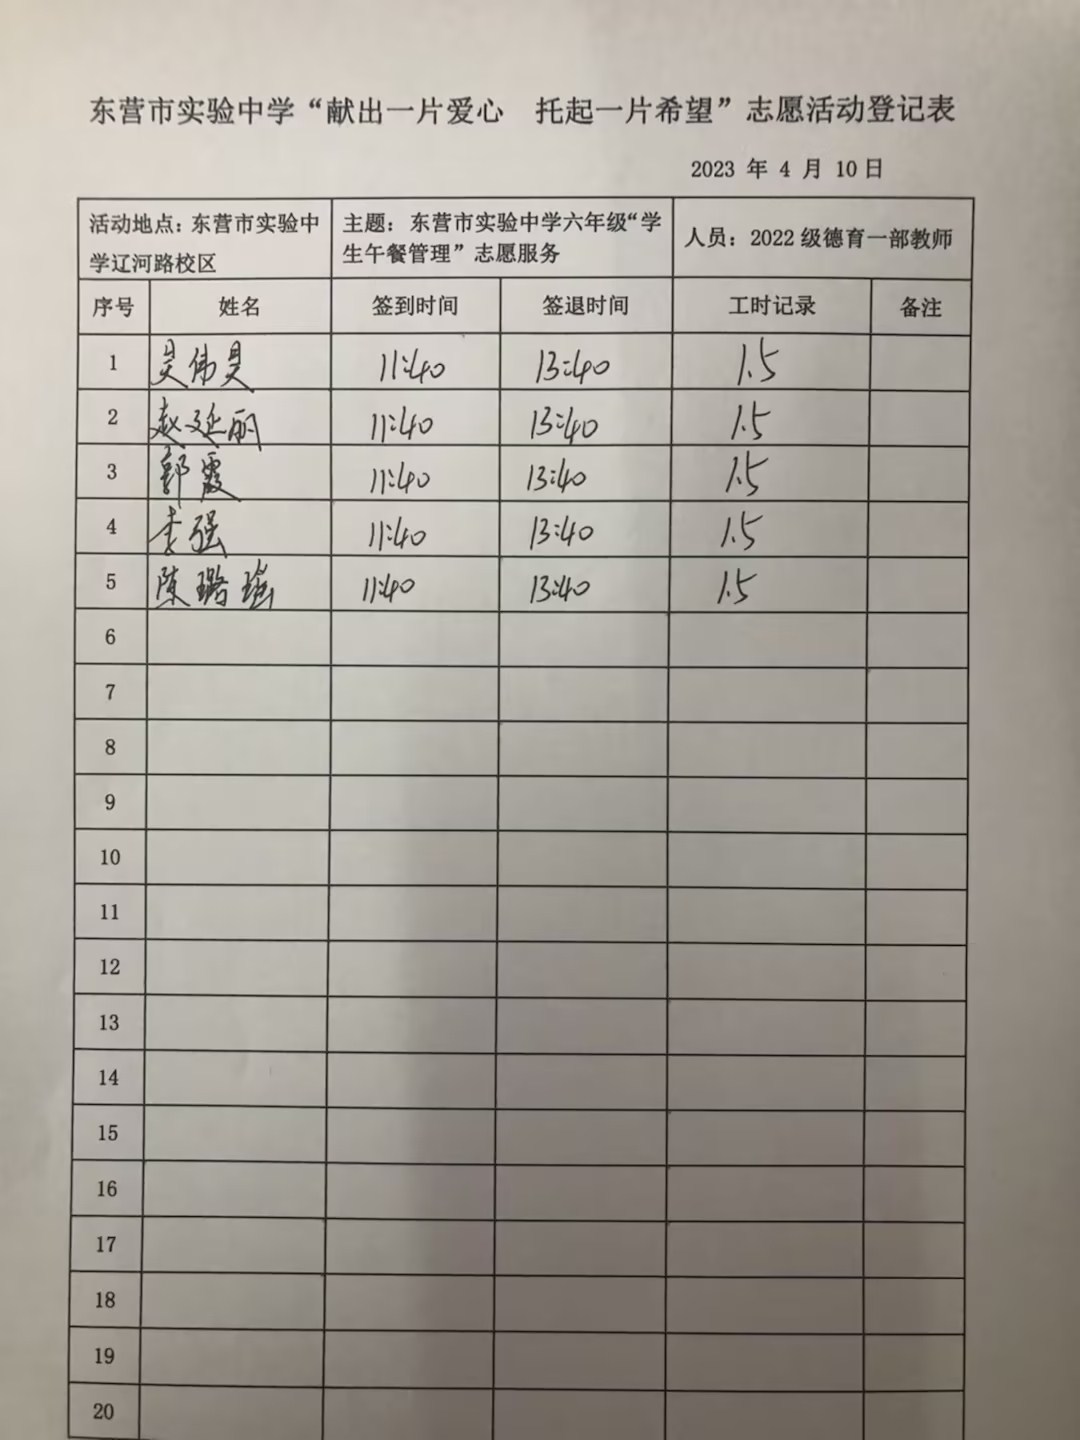 东营市实验中学“献出一片爱心 托起一片希望”志愿活动登记表
2023 年 4 月 10 日
活动地点：东营市实验中学辽河路校区 主题：东营市实验中学六年级“学生午餐管理”志愿服务 人员：2022 级德育一部教师
序号 姓名 签到时间 签退时间 工时记录 备注
1 吴伟昊 11:40 13:40 1.5
2 赵延丽 11:40 13:40 1.5
3 郭霞 11:40 13:40 1.5
4 李强 11:40 13:40 1.5
5 陈璐瑶 11:40 13:40 1.5
6
7
8
9
10
11
12
13
14
15
16
17
18
19
20